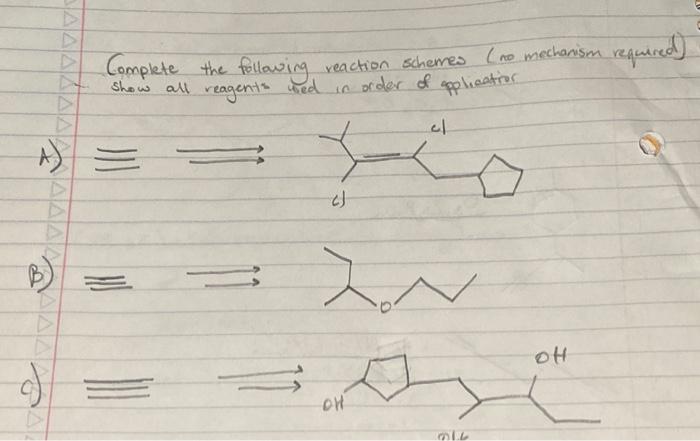 Complete the following reaction schemes (no mechanism required)
Show all reagents used in order of application
A)
Cl
Cl
B)
O
C)
OH
OH